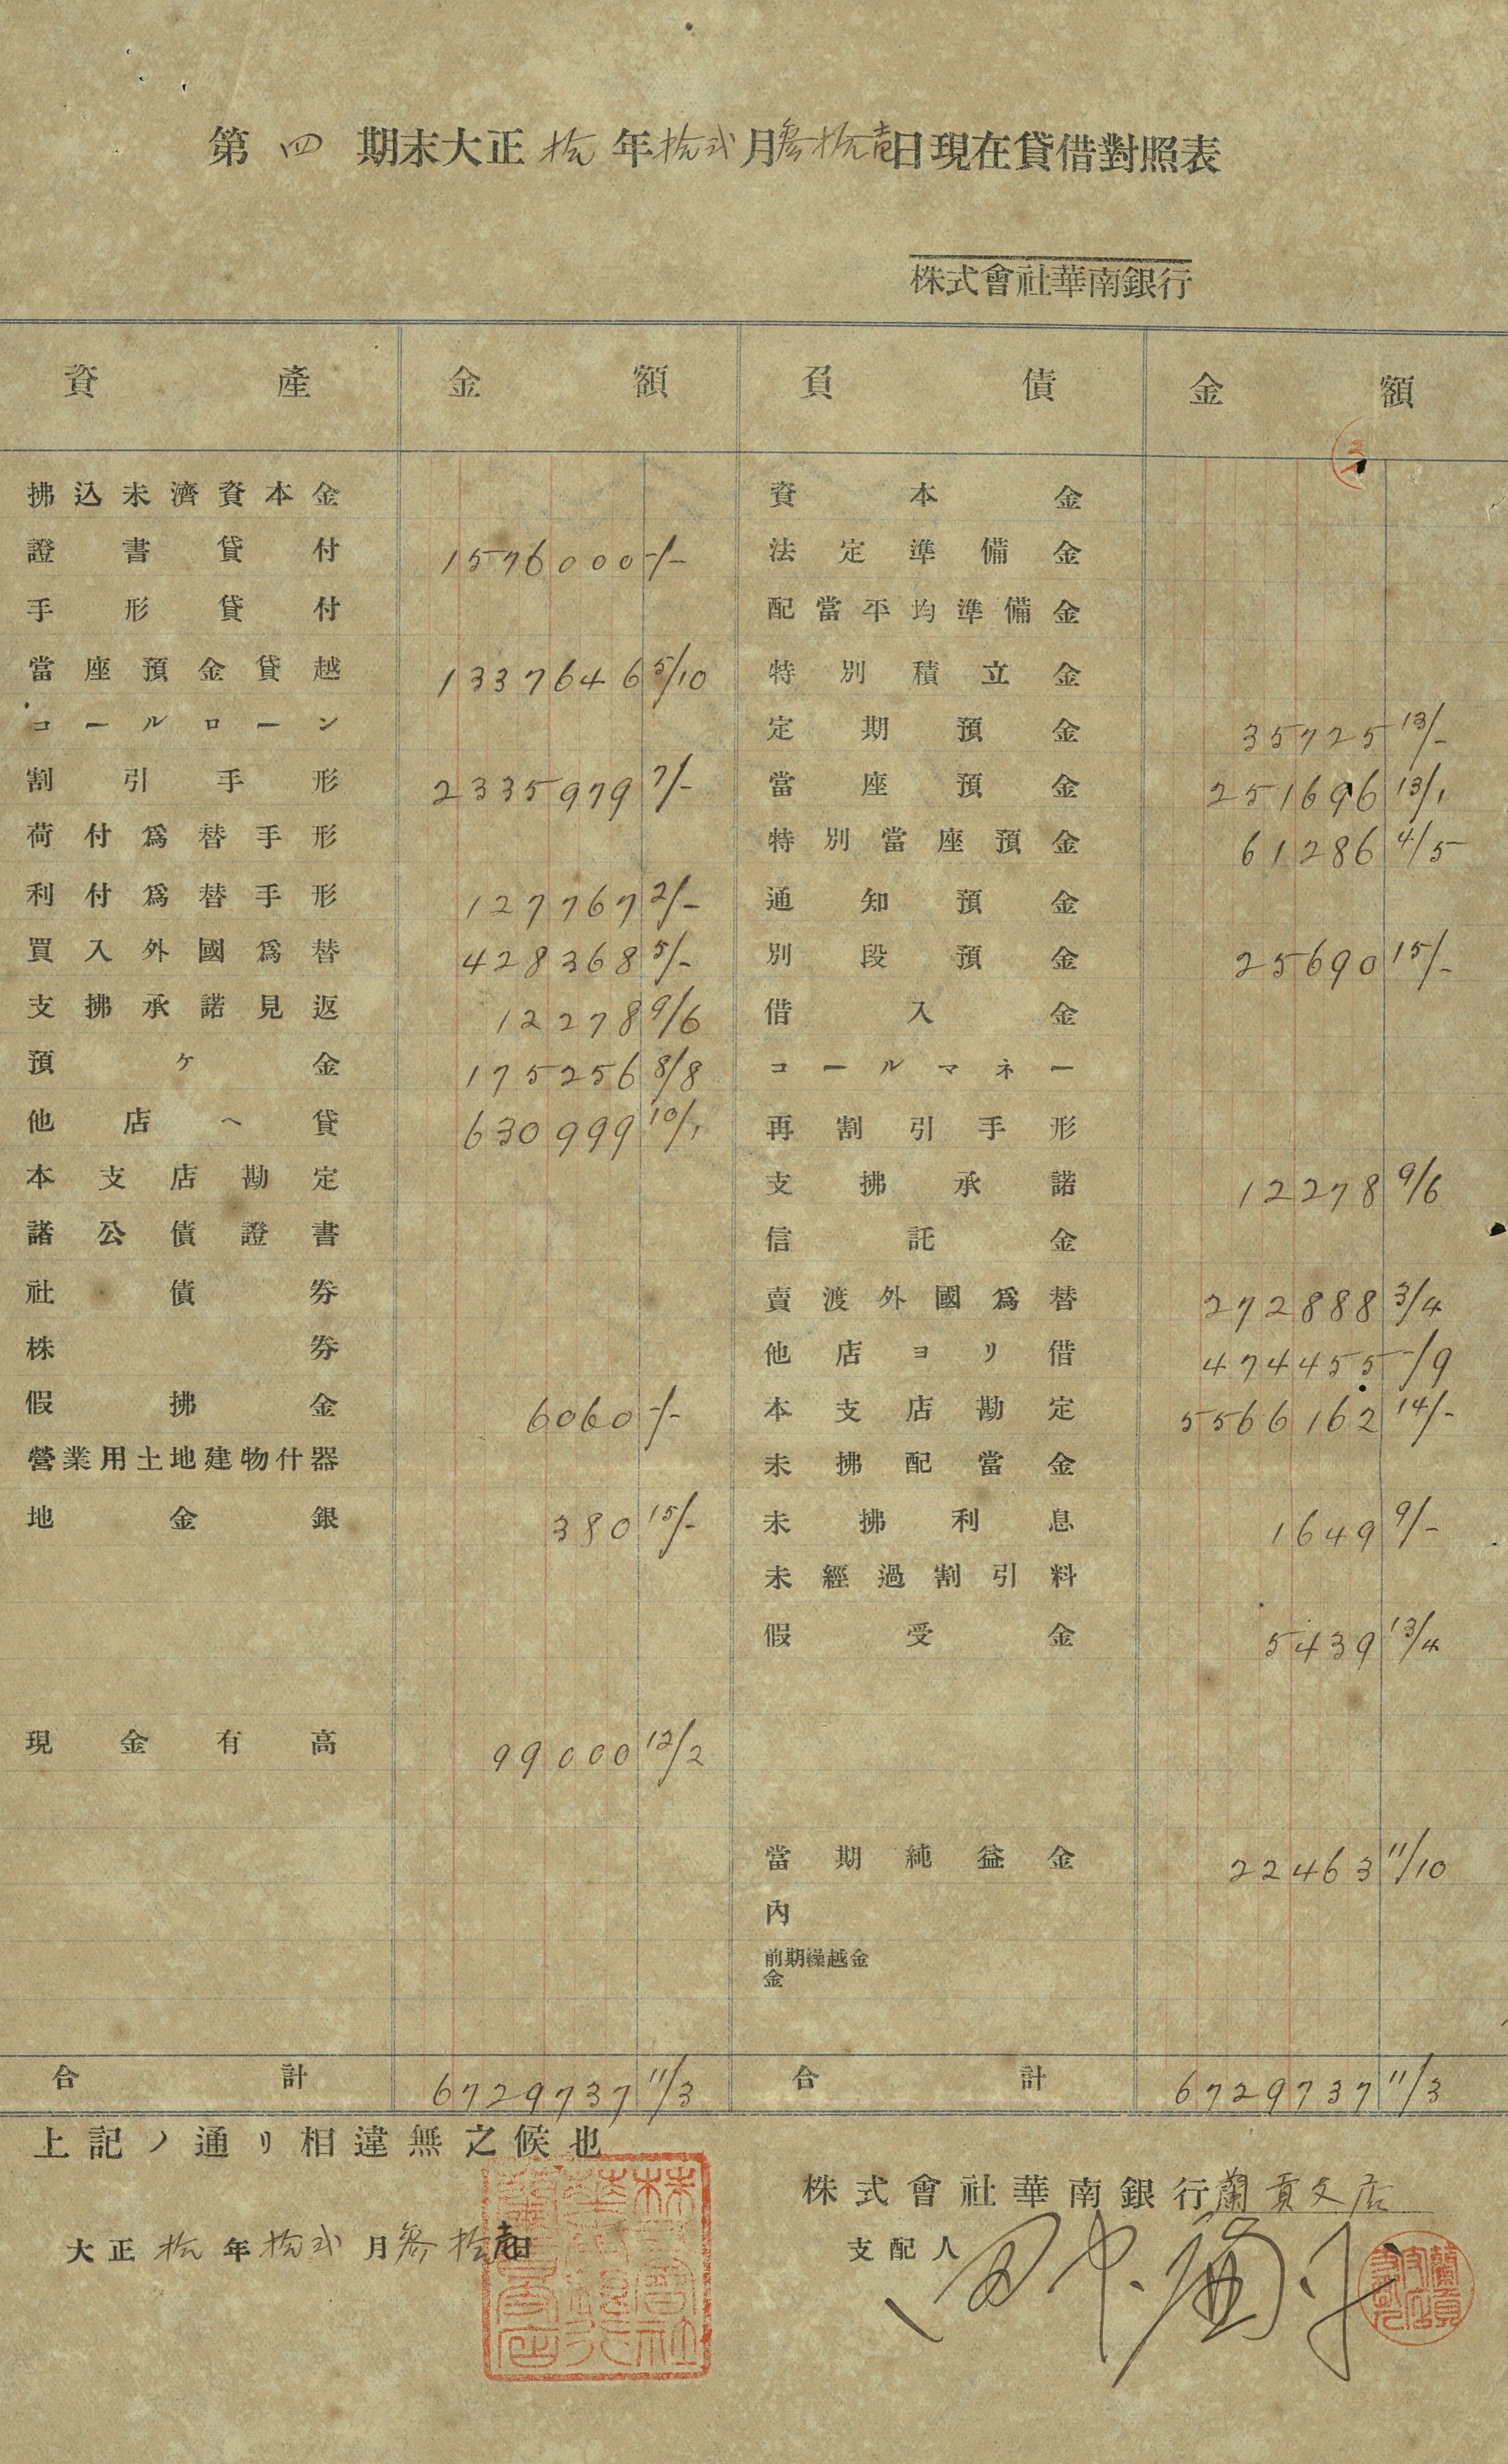 第四期末大正拾年拾弍月参拾壱日現在貸借對照表
株式會社華南銀行
資產 金額 負債 金額
拂込未濟資本金 資本金
證書貸付 1576000 -/- 法定準備金
手形貸付 配當平均準備金
當座預金貸越 1337646 5/10 特別積立金
コールローン 定期預金 35725 13/-
割引手形 2335979 7/- 當座預金 251696 13/1
荷付爲替手形 特別當座預金 61286 4/5
利付爲替手形 127767 2/- 通知預金
買入外國爲替 428368 5/- 別段預金 25690 15/-
支拂承諾見返 12278 9/6 借入金
預ケ金 175256 8/8 コールマネー
他店へ貸 630999 10/1 再割引手形
本支店勘定 支拂承諾 12278 9/6
諸公債證書 信託金
社債劵 賣渡外國爲替 272888 3/4
株劵 他店ヨリ借 474455 -/9
假拂金 6060 -/- 本支店勘定 5566162 14/-
營業用土地建物什器 未拂配當金
地金銀 380 15/- 未拂利息 1649 9/-
未經過割引料
假受金 5439 13/4
現金有高 99000 12/2
當期純益金 22463 11/10
內
前期繰越金
金
合計 6729737 11/3 合計 6729737 11/3
上記ノ通リ相違無之候也
株式會社華南銀行蘭貢支店
大正拾年拾弍月参拾壱日
支配人